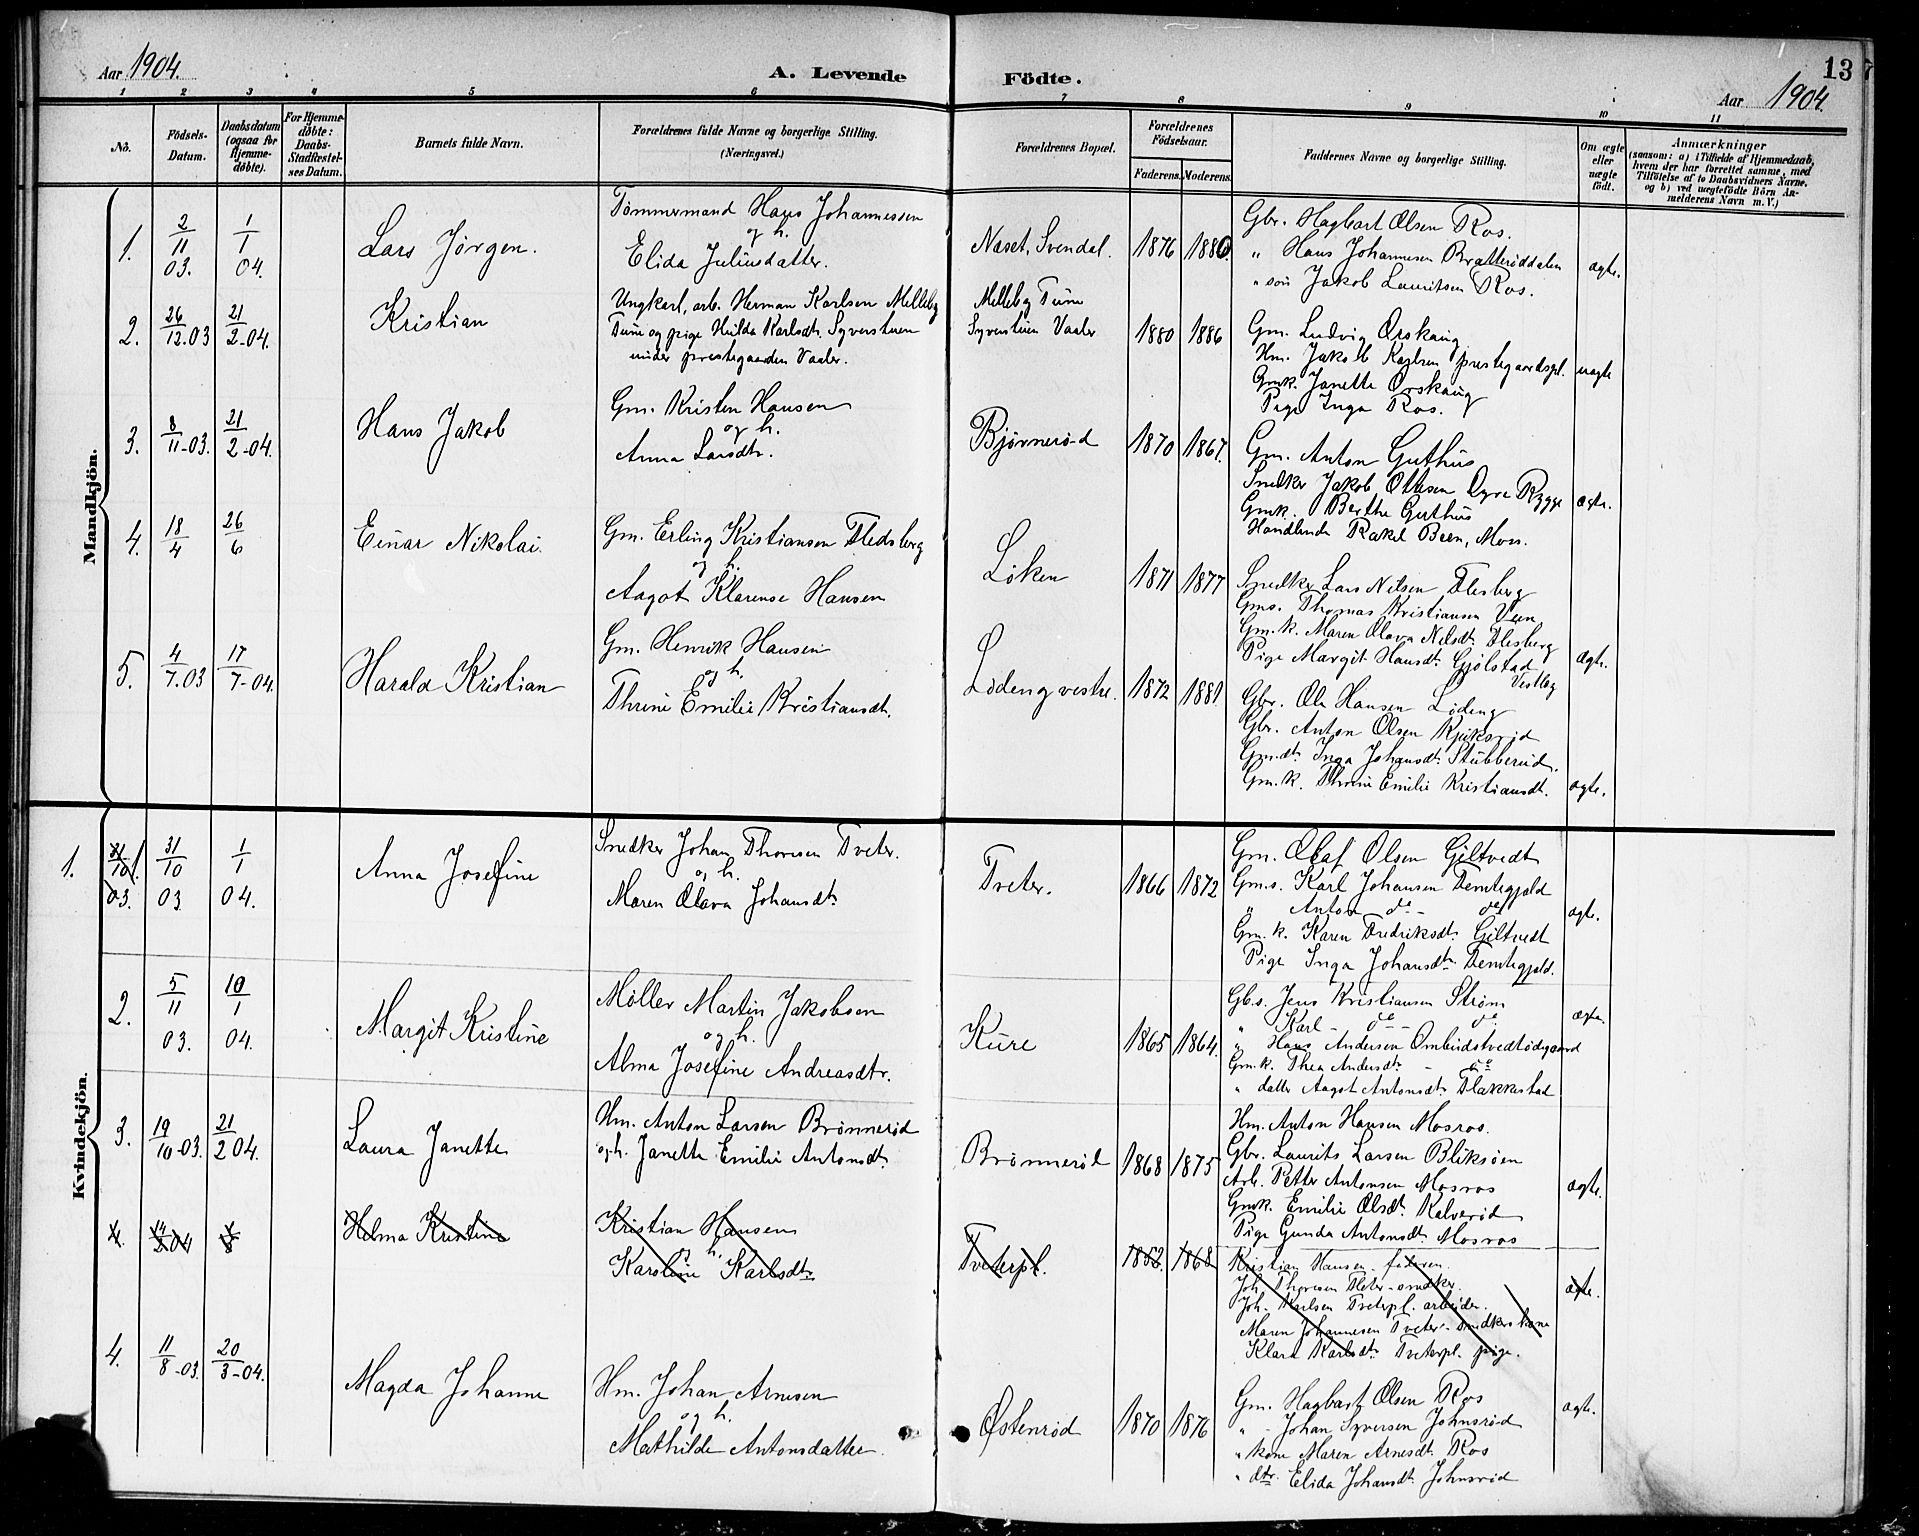 Aar 1904.
A. Levende Födte.
13
Aar 1904.
1 2 3 4 5 6 7 8 9 10 11
No.
Födsels-Datum.
Daabsdatum (ogsaa for Hjemme-döbte).
For Hjemme-döbte: Daabs-Stadfæstel-ses Datum.
Barnets fulde Navn.
Forældrenes fulde Navne og borgerlige Stilling.
(Næringsvei.)
Forældrenes Bopæl.
Forældrenes Födselsaar.
Faderens. Moderens.
Faddernes Navne og borgerlige Stilling.
Om ægte eller uægte født.
Anmærkninger
(saasom: a) i Tilfælde af Hjemmedaab,
hvem der har forrettet samme, med
Tilföielse af to Daabsvidners Navne,
og b) ved uægtefödte Börn An-
melderens Navn m. V.)
Mandkjön.
1.
2/11 03.
1/1 04.
Lars Jørgen.
Tømmermand Hans Johannessen
og h.
Elida Juliusdatter.
Næset, Svendal.
1876 1880.
Gbr. Hagbart Olsen Ros.
" Hans Johannesen Bratterøddalen
" søn Jakob Lauritsen Ros.
ægte.
2.
26/12.03
21/2-04.
Kristian
Ungkarl, arb. Herman Karlsen Melleby
Tune og pige Hulda Karlsdt. Syverstuen
under prestegaarden Vaaler.
Melleby Tune
Syverstuen Vaaler
1880 1886
Gm. Ludvig Orskaug
Hm. Jakob Karlsen prestegaardspl.
Gmk. Janette Orskaug
Pige Inga Ros.
uægte
3.
8/11-03.
21/2-04.
Hans Jakob
Gm. Kristen Hansen
og h.
Anna Larsdtr.
Bjørnerød
1870 1867.
Gm. Anton Guthus
Snedker Jakob Ottesen Dyre Rygge
Gmk. Berthe Guthus
Handlende Rakel Been, Moss.
ægte.
4.
18/4
26/6
Einar Nikolai.
Gm. Erling Kristiansen Fledsberg
og h.
Aagot Klarense Hansen
Løken
1871 1877
Snedker Lars Nilsen Flesberg
Gms. Thomas Kristiansen Veen
Gm.k. Maren Olava Nilsdt. Flesberg
Pige Margit Hansdt. Gjølstad
Vestby
ægte.
5.
4/7.03
17/7-04.
Harald Kristian
Gm. Henrik Hansen
og h.
Thrine Emilie Kristiansdt.
Lødeng vestre.
1872 1881.
Gbr. Ole Hansen Lødeng
Gbr. Anton Olsen Kjiksrød
Gm.dt. Inga Johansdt. Stubberud.
Gm.k. Thrine Emilie Kristiansdt.
ægte.
Kvindekjön.
1.
31/10 03.
31/10 03
1/1 04.
Anna Josefine
Snedker Johan Thoresen Tveter.
og h.
Maren Olava Johansdt.
Tveter.
1866 1872
Gm. Olaf Olsen Giltvedt
Gm.s. Karl Johansen Demtegjeld
" Anton do - do
Gm.k. Karen Fredriksdt. Giltvedt
Pige Inga Johansdt. Demtegjeld.
ægte.
2.
5/11 03.
10/1 04.
Margit Kristine
Møller Martin Jakobsen
og h.
Alma Josefine Andreasdtr.
Kure
1865 1864.
Gb.s. Jens Kristiansen Strøm
" Karl - do - do
" Hans Andersen Ombudstvedtødegaard
Gm.k. Thea Andersdt. - do
" datter Aagot Antonsdt. Flakkestad
ægte.
3.
19/10-03.
21/2 04.
Laura Janette
Hm. Anton Larsen Brønnerød
og h. Janette Emilie Antonsdt.
Brønnerød
1868 1875
Hm. Anton Hansen Mosros.
Gbr. Laurits Larsen Bliksøen
Arb. Petter Antonsen Mosros
Gmk. Emilie Olsdt. Kalverød
Pige Gunda Antonsdt. Mosros
ægte.
4.
Helma Kristine
Kristian Hansen
og h.
Karoline Karlsdtr.
Tveterpl.
1863. 1868
Kristian Hansen - faderen.
Joh. Thoresen Tveter - snedker.
Joh. Karlsen Tveterpl. arbeider.
Maren Johannesen Tveter - snedkers kone
Klara Karlsdt. Tveterpl. pige.
ægte.
4.
11/8-03.
20/3-04.
Magda Johanne
Hm. Johan Arnesen
og h.
Mathilde Antonsdatter.
Østenrød
1870 1876
Gm. Hagbart Olsen Ros
" - Johan Syversen Johnsrød
" kone Maren Arnesdt. Ros
" dtr. Elida Johansdt. Johnsrød
ægte.